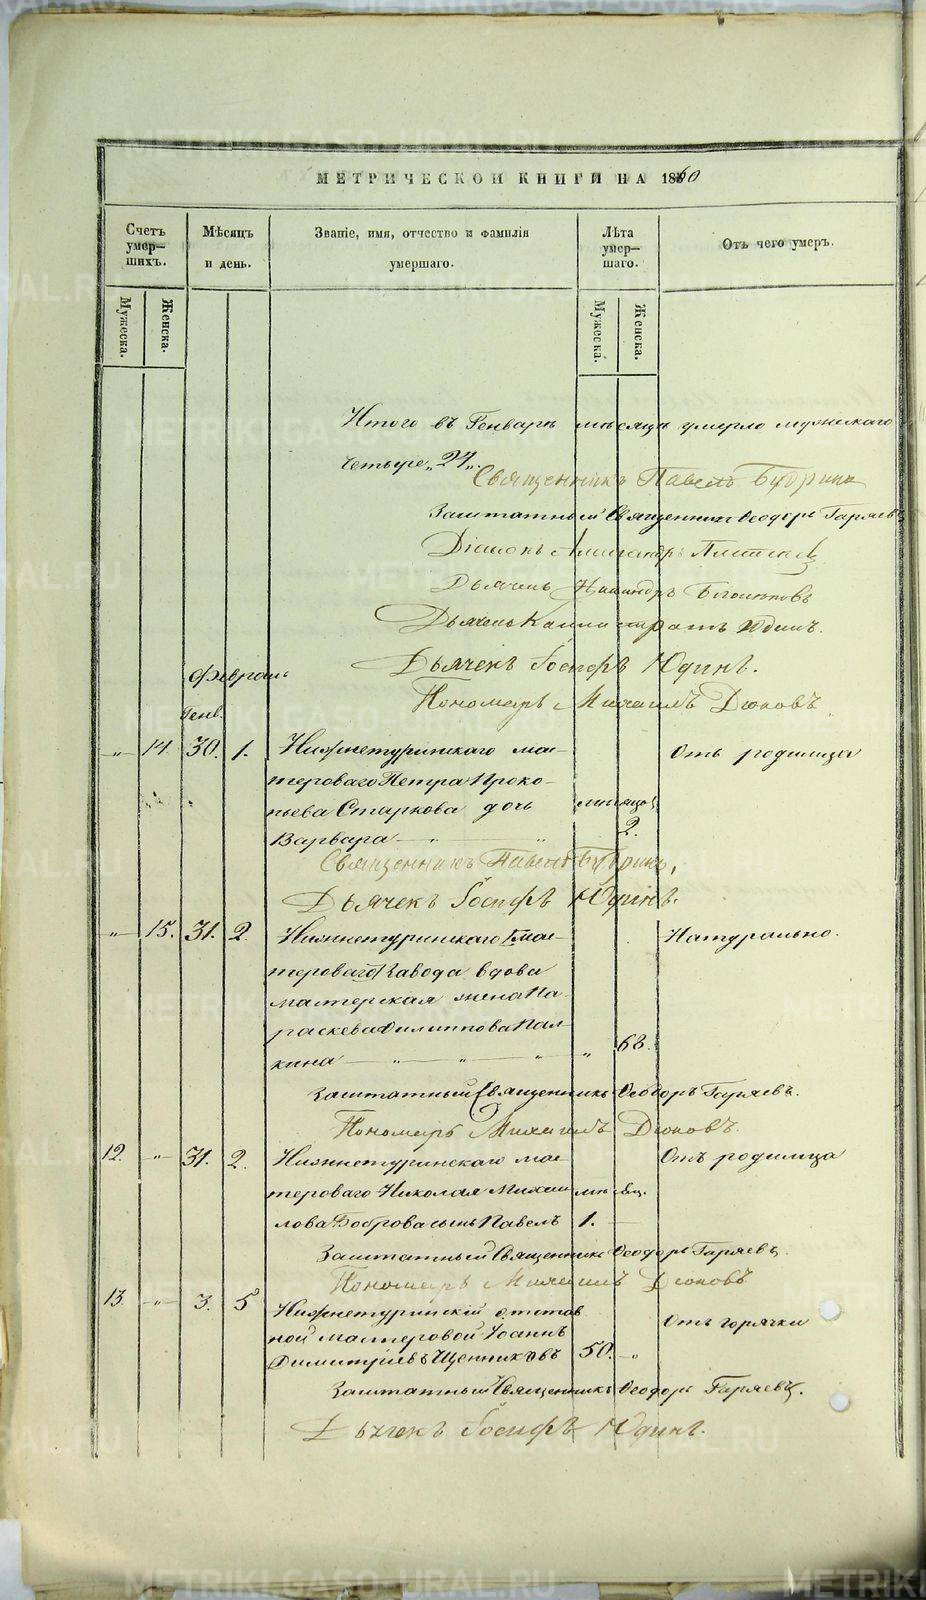 МЕТРИЧЕСКОЙ КНИГИ НА 1860
Счетъ умер-шихъ.
Мѣсяцъ и день.
Званіе, имя, отчество и фамилія умершаго.
Лѣта умер-шаго.
Отъ чего умеръ.
Мужеска.
Женска.
Мужеска.
Женска.
Итого въ Генварѣ мѣсяцѣ умерло мужескаго
четыре „24„.
Священникъ Павелъ
Заштатный Священникъ Ѳеодоръ Гаряевъ
Діаконъ Александръ
Дьячекъ
Дьячекъ Каллистратъ Юдинъ.
Дьячекъ Іосифъ Юдинъ.
Пономарь Михаилъ Дюковъ
Февраль
Генв.
„ 14. 30. 1. Нижнетуринскаго мас- Отъ родимца
тероваго Петра Проко-
пьева Старкова дочь мѣсяцъ
Варвара 2.
Священникъ Павелъ
Дьячекъ Іосифъ Юдинъ.
„ 15. 31. 2. Нижнетуринскаго мас- Натурально.
тероваго Завода вдова
мастерская жена Па-
раскева Филиппова Пал-
кина „ „ „ „ 68.
Заштатный Священникъ Ѳеодоръ Гаряевъ.
Пономарь Михаилъ Дюковъ.
12. „ 31. 2. Нижнетуринскаго мас- Отъ родимца
тероваго Николая Михаи мѣсяц.
лова Боброва сынъ Павелъ 1.
Заштатный Священникъ Ѳеодоръ Гаряевъ.
Пономарь Михаилъ Дюковъ
13. „ 3. 5 Нижнетуринскій отстав Отъ горячки
ной мастеровой Іоаннъ
Димитріевъ Щенниковъ 50. „
Заштатный Священникъ Ѳеодоръ Гаряевъ.
Дьячекъ Іосифъ Юдинъ.
METRIKI.GASO-URAL.RU